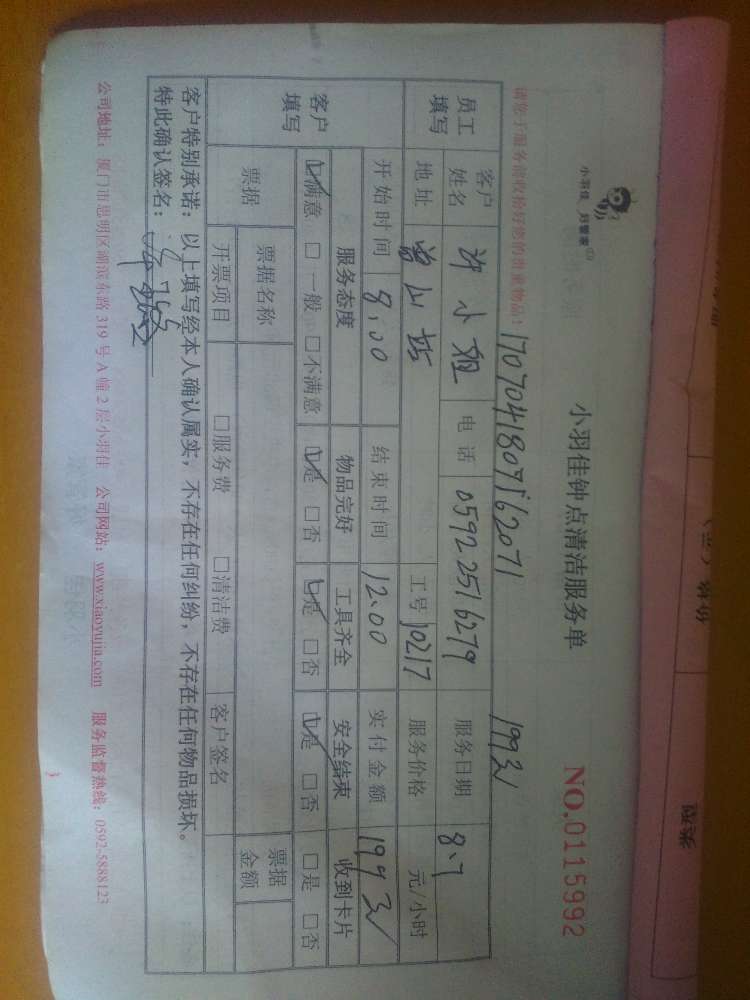 小羽佳 好管家
小羽佳钟点清洁服务单
NO.0115992
请您于服务前收拾好您的贵重物品!
1707041807562071
199元
员工填写 客户姓名 许小姐 电话 0592 2516279 服务日期 8.7
地址 工号 10217 服务价格 元/小时
客户填写 开始时间 8:00 结束时间 12:00 实付金额 199元
服务态度 物品完好 工具齐全 安全结束 收到卡片
☑满意 □一般 □不满意 ☑是 □否 ☑是 □否 ☑是 □否 □是 □否
票据 票据名称 票据金额
开票项目 □服务费 □清洁费 客户签名
客户特别承诺:以上填写经本人确认属实,不存在任何纠纷,不存在任何物品损坏。
特此确认签名:
公司地址:厦门市思明区湖滨东路 319 号 A 幢 2 层小羽佳 公司网站:www.xiaoyujia.com 服务监督热线:0592-5888123